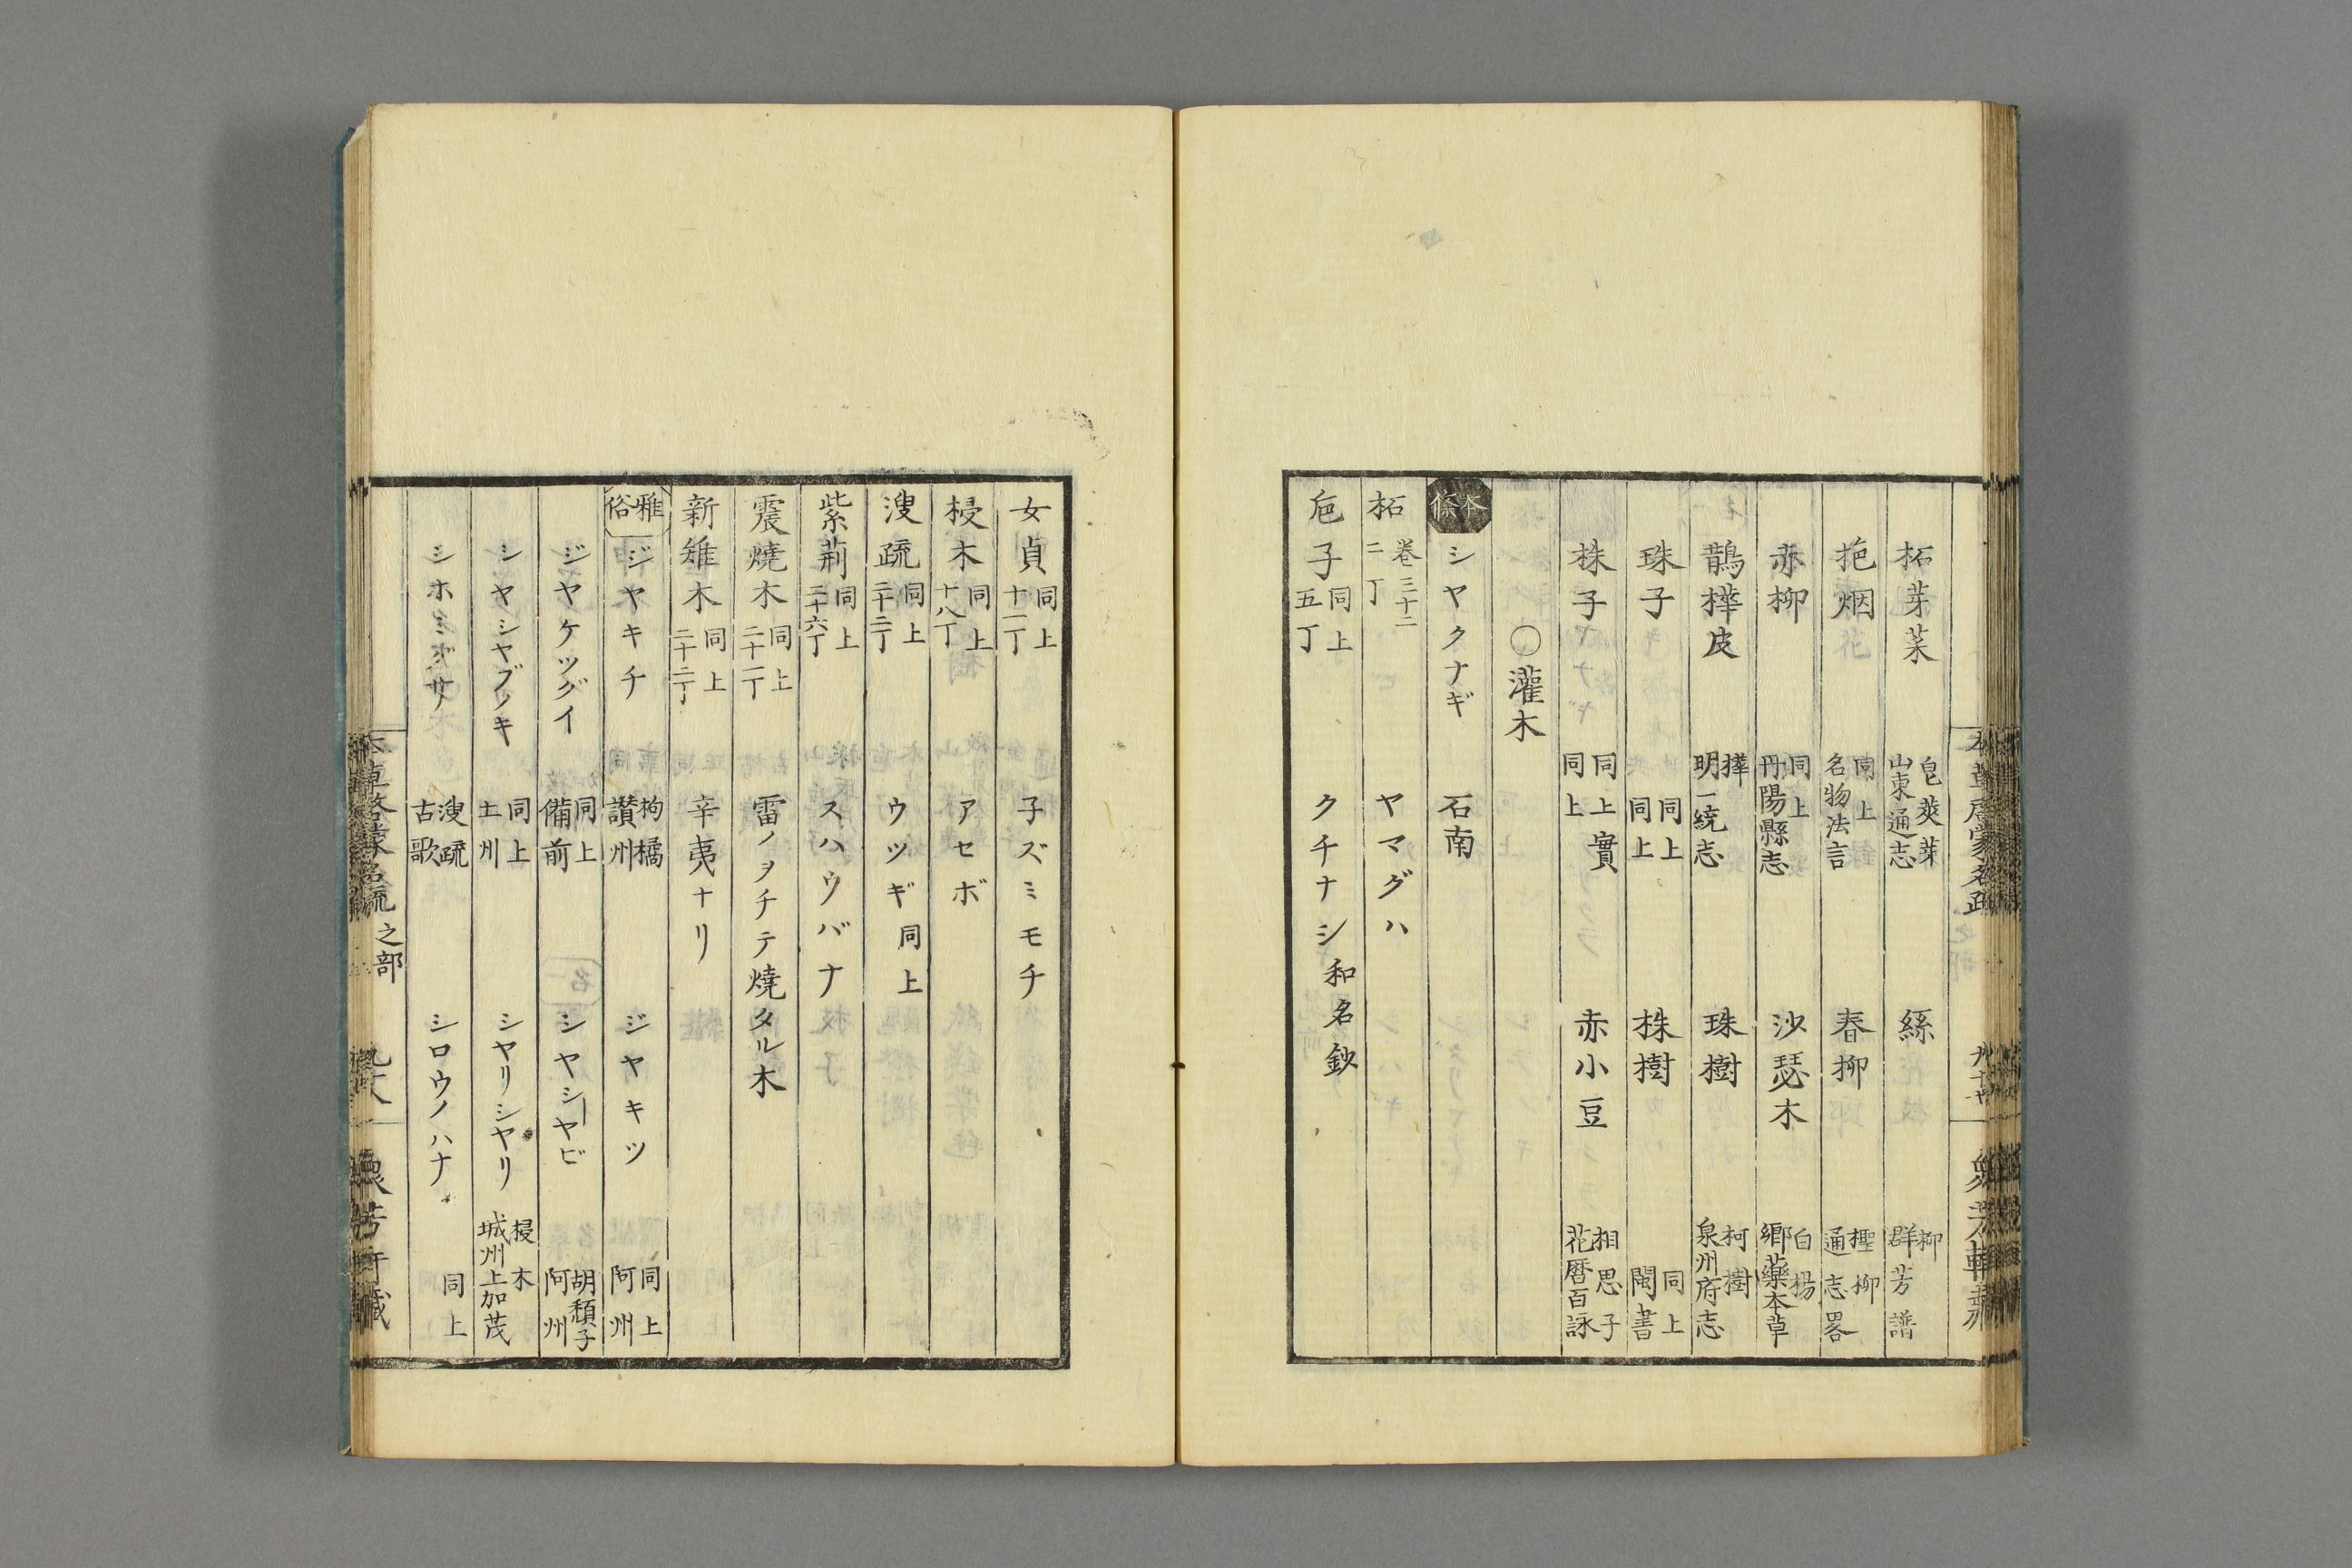 柘芽菜 皂莢芽 山東通志 絲 柳 群芳譜
疤烟 同上 名物法言 春柳 檉柳 通志畧
赤柳 同上 丹陽縣志 沙瑟木 白楊 鄉藥本草
鵲樺皮 樺 明一統志 珠樹 柯樹 泉州府志
珠子 同上 同上 株樹 同上 閩書
株子 同上實 同上 赤小豆 相思子 花曆百詠
○灌木
本條 シヤクナギ 石南
柘 卷三十二 二丁 ヤマグハ
巵子 同上 五丁 クチナシ 和名鈔
女貞 同上 十一丁 子ズミモチ
梫木 同上 十八丁 アセボ
溲疏 同上 二十二丁 ウツギ 同上
紫荊 同上 二十六丁 スハウバナ
震燒木 同上 二十一丁 雷ノヲチテ燒タル木
新雉木 同上 二十二丁 辛夷ナリ
雅俗 ジヤキチ 枸橘 讃州 ジヤキツ 同上 阿州
ジヤケツグイ 同上 備前 シヤシヤビ 胡頽子 阿州
シヤシヤブノキ 同上 土州 シヤリシヤリ 梫木 城州上加茂
シホミグサ 溲疏 古歌 シロウノハナ 同上
本草啓蒙名疏 之部 衆芳軒藏